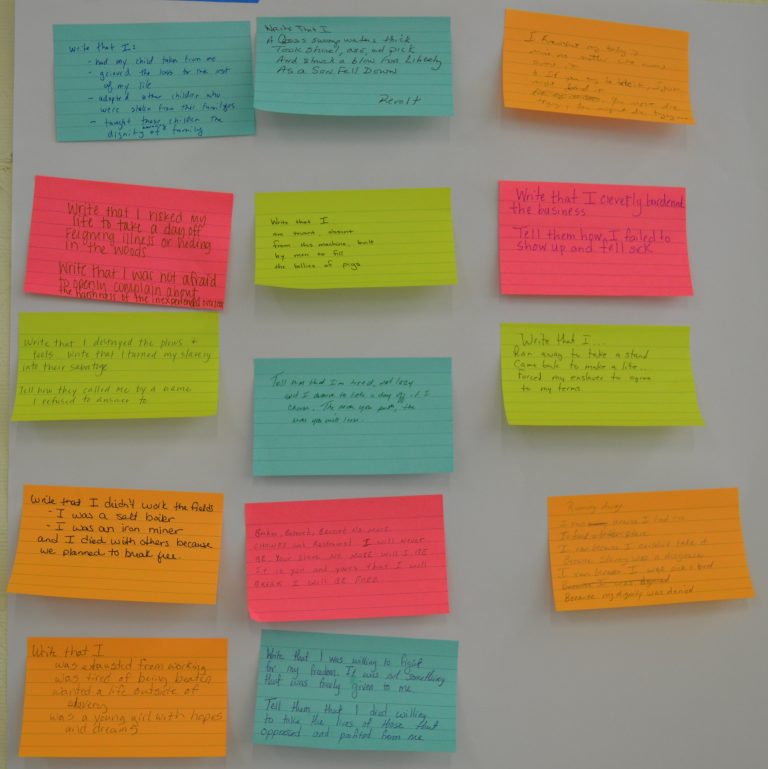 Write that I:
- had my child taken from me
- grieved the loss for the rest
of my life
- adopted other children who
were stolen from their families
- taught those children the
dignity of family
Write That I
A Cross swamp waters thick
Took shovel, axe, and pick
And struck a blow for Liberty
As a Son Fell Down
Revolt
Write that I risked my
life to take a day off
Feigning illness or hiding
in the woods
Write that I was not afraid
to openly complain about
the harshness of the inexperienced
Write that I
am truant, absent
from this machine, built
by men to fill
the bellies of pigs
Write that I cleverly burdened
the business
Tell them how I failed to
show up and tell sick
Write that I destroyed the plows +
tools. Write that I turned my slavery
into their sabotage
Tell how they called me by a name
I refused to answer to
Tell him that I'm tired, not lazy
and I deserve to take a day off if I
choose. The more you push, the
more you will lose.
Write that I...
Ran away to take a stand
Came back to make a life...
Forced my enslaver to agree
to my terms
Write that I didn't work the fields
- I was a salt boiler
- I was an iron miner
and I died with others because
we planned to break free.
Broken, Battered, Beaten No More
CHAINED and Restrained I will Never
BE Your Slave No More will I BE
It is you and yours that I will
BREAK I WILL BE FREE
Running Away
I ran because I had to
I ran because I couldn't take it
Because slavery was a disgrace
I ran because I was
Because my dignity was denied
Write that I
was exhausted from working
was tired of being beaten
wanted a life outside of
slavery
was a young girl with hopes
and dreams
Write that I was willing to fight
for my freedom. It was not something
that was freely given to me.
Tell them that I died willing
to take the lives of those that
opposed and profited from me